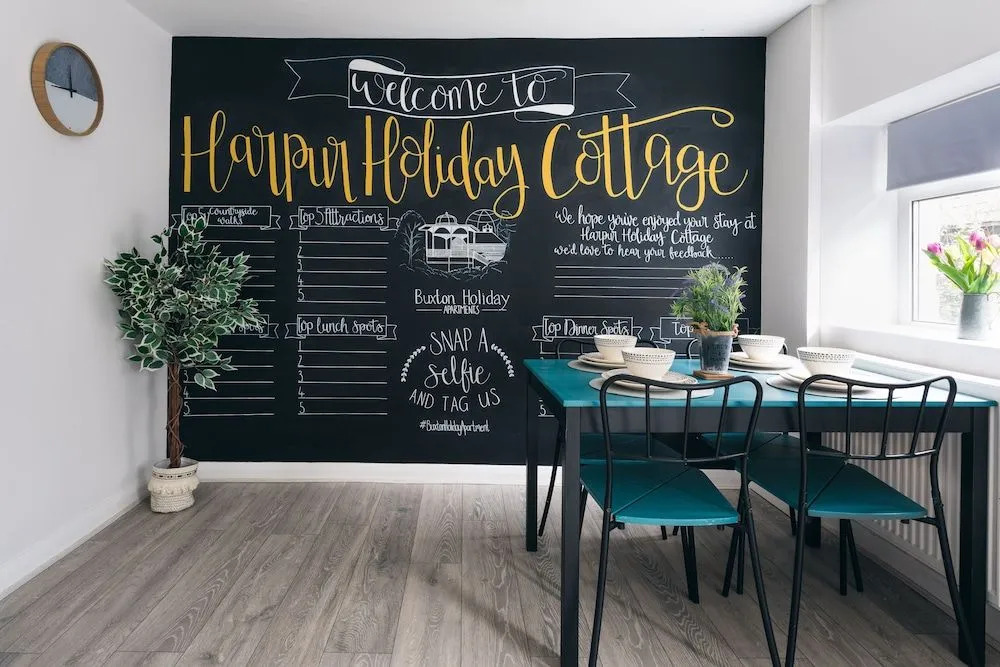 Welcome to
Harpur Holiday Cottage
Top 5 Countryside
Walks
5
Top 5 Attractions
1
2
3
4
5
Buxton Holiday
APARTMENTS
We hope you've enjoyed your stay at
Harpur Holiday Cottage
we'd love to hear your feedback......
Top Lunch Spots
1
2
3
4
5
5
SNAP A
Selfie
AND TAG US
#BuxtonHolidayApartment
Top Dinner Spots
5
Top